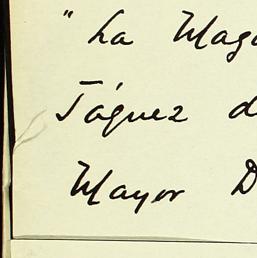 " La Mag
Táguez d
Mayor D